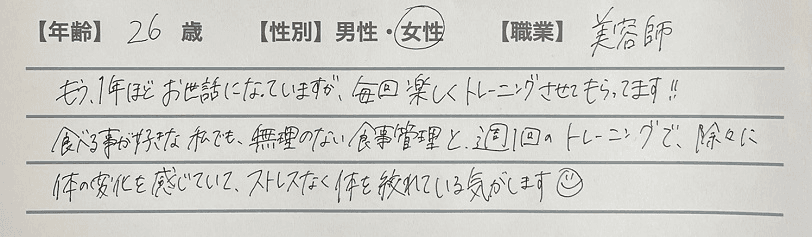 【年齢】 26 歳 【性別】男性・女性 【職業】 美容師
もう、1年ほど お世話になっていますが、毎回 楽しくトレーニングさせてもらってます!!
食べる事が好きな 私でも、無理のない 食事管理と、週1回の トレーニングで、除々に
体の変化を感じていて、ストレスなく 体を絞れている気がします☺